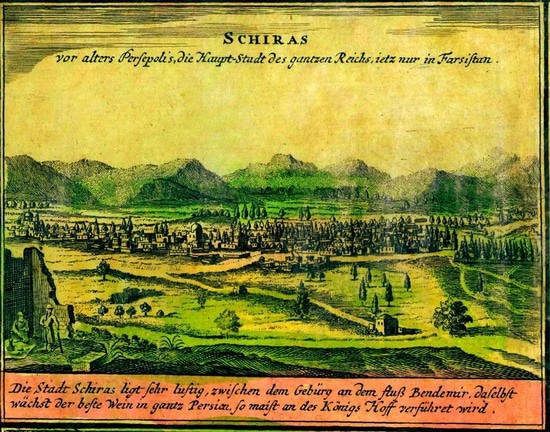 SCHIRAS
vor alters Persepolis, die Haupt-Stadt des gantzen Reichs, ietz nur in Farsistan.
Die Stadt Schiras ligt sehr lustig, zwischen dem Gebürg an dem fluß Bendemir, daselbst
wächst der beste Wein in gantz Persien, so maist an des Königs Hoff verführet wird.